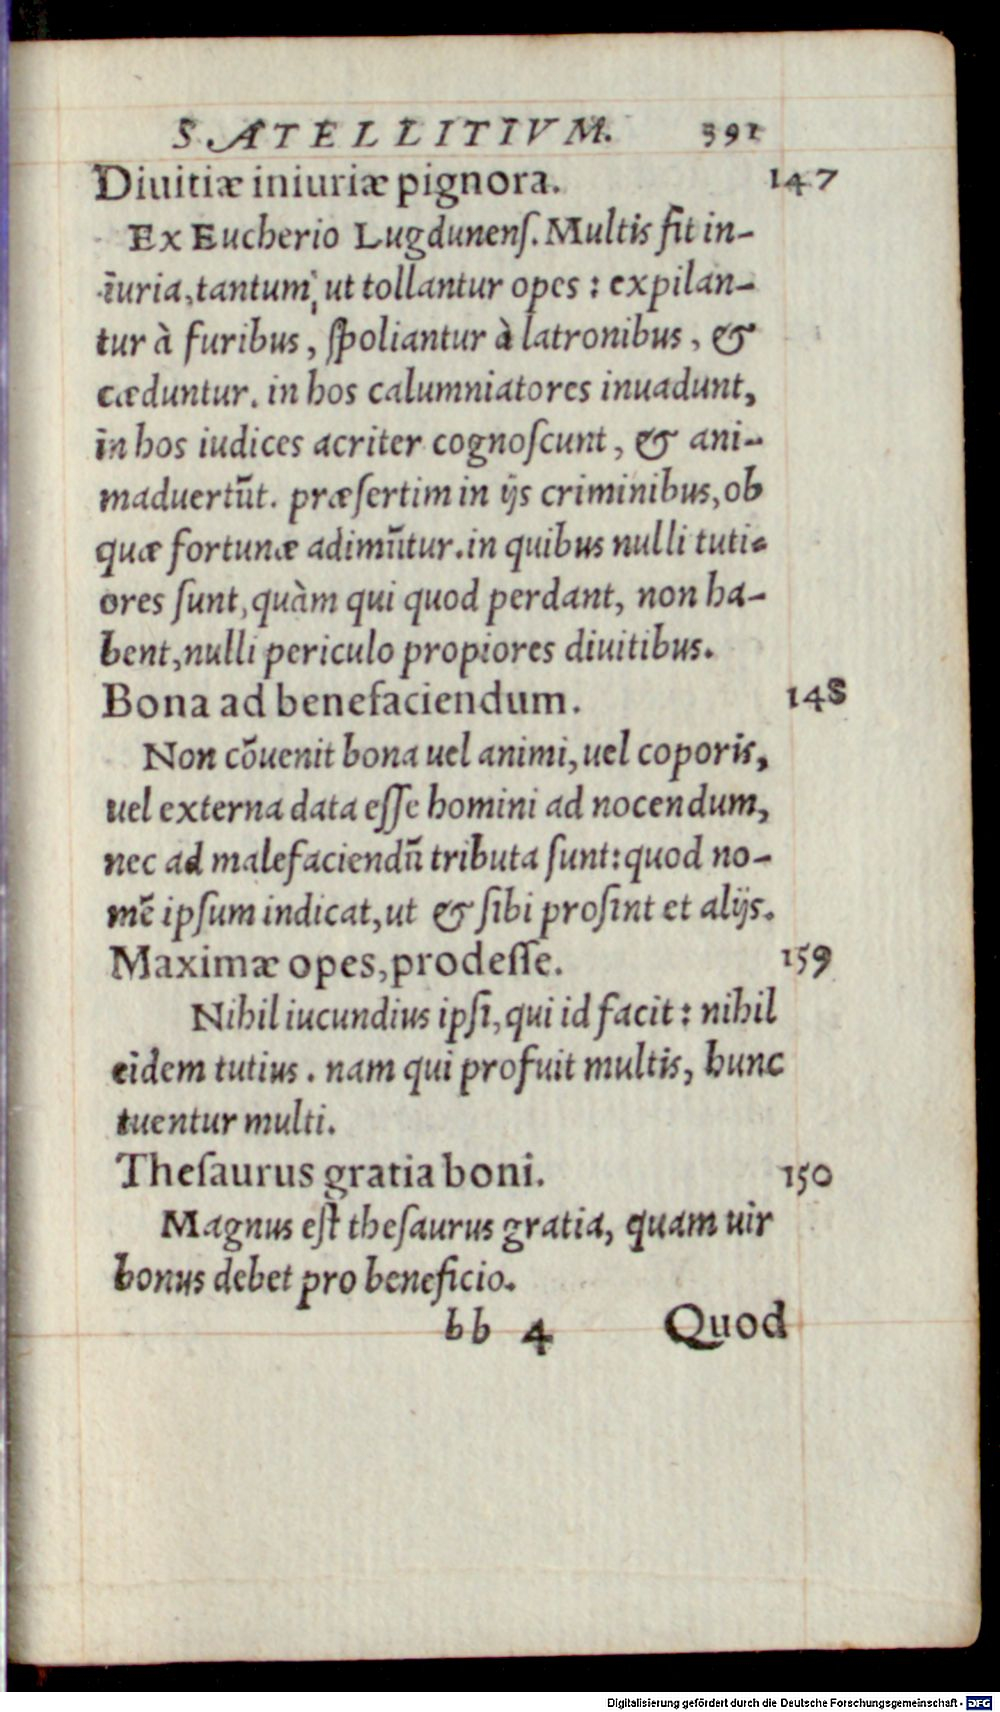 SATELLITIVM. 391
Diuitiæ iniuriæ pignora. 147
Ex Eucherio Lugdunenſ. Multis fit in-
iuria, tantum, ut tollantur opes: expilan-
tur à furibus, ſpoliantur à latronibus, &
cæduntur. in hos calumniatores inuadunt,
in hos iudices acriter cognoſcunt, & ani-
maduertũt. præſertim in ijs criminibus, ob
quæ fortunæ adimũtur. in quibus nulli tuti-
ores ſunt, quàm qui quod perdant, non ha-
bent, nulli periculo propiores diuitibus.
Bona ad benefaciendum. 148
Non cõuenit bona uel animi, uel coporis,
uel externa data eſſe homini ad nocendum,
nec ad malefaciendũ tributa ſunt: quod no-
mẽ ipſum indicat, ut & ſibi proſint et alijs.
Maximæ opes, prodeſſe. 159
Nihil iucundius ipſi, qui id facit: nihil
eidem tutius. nam qui profuit multis, hunc
tuentur multi.
Theſaurus gratia boni. 150
Magnus eſt theſaurus gratia, quam uir
bonus debet pro beneficio.
bb 4 Quod
Digitalisierung gefördert durch die Deutsche Forschungsgemeinschaft - DFG